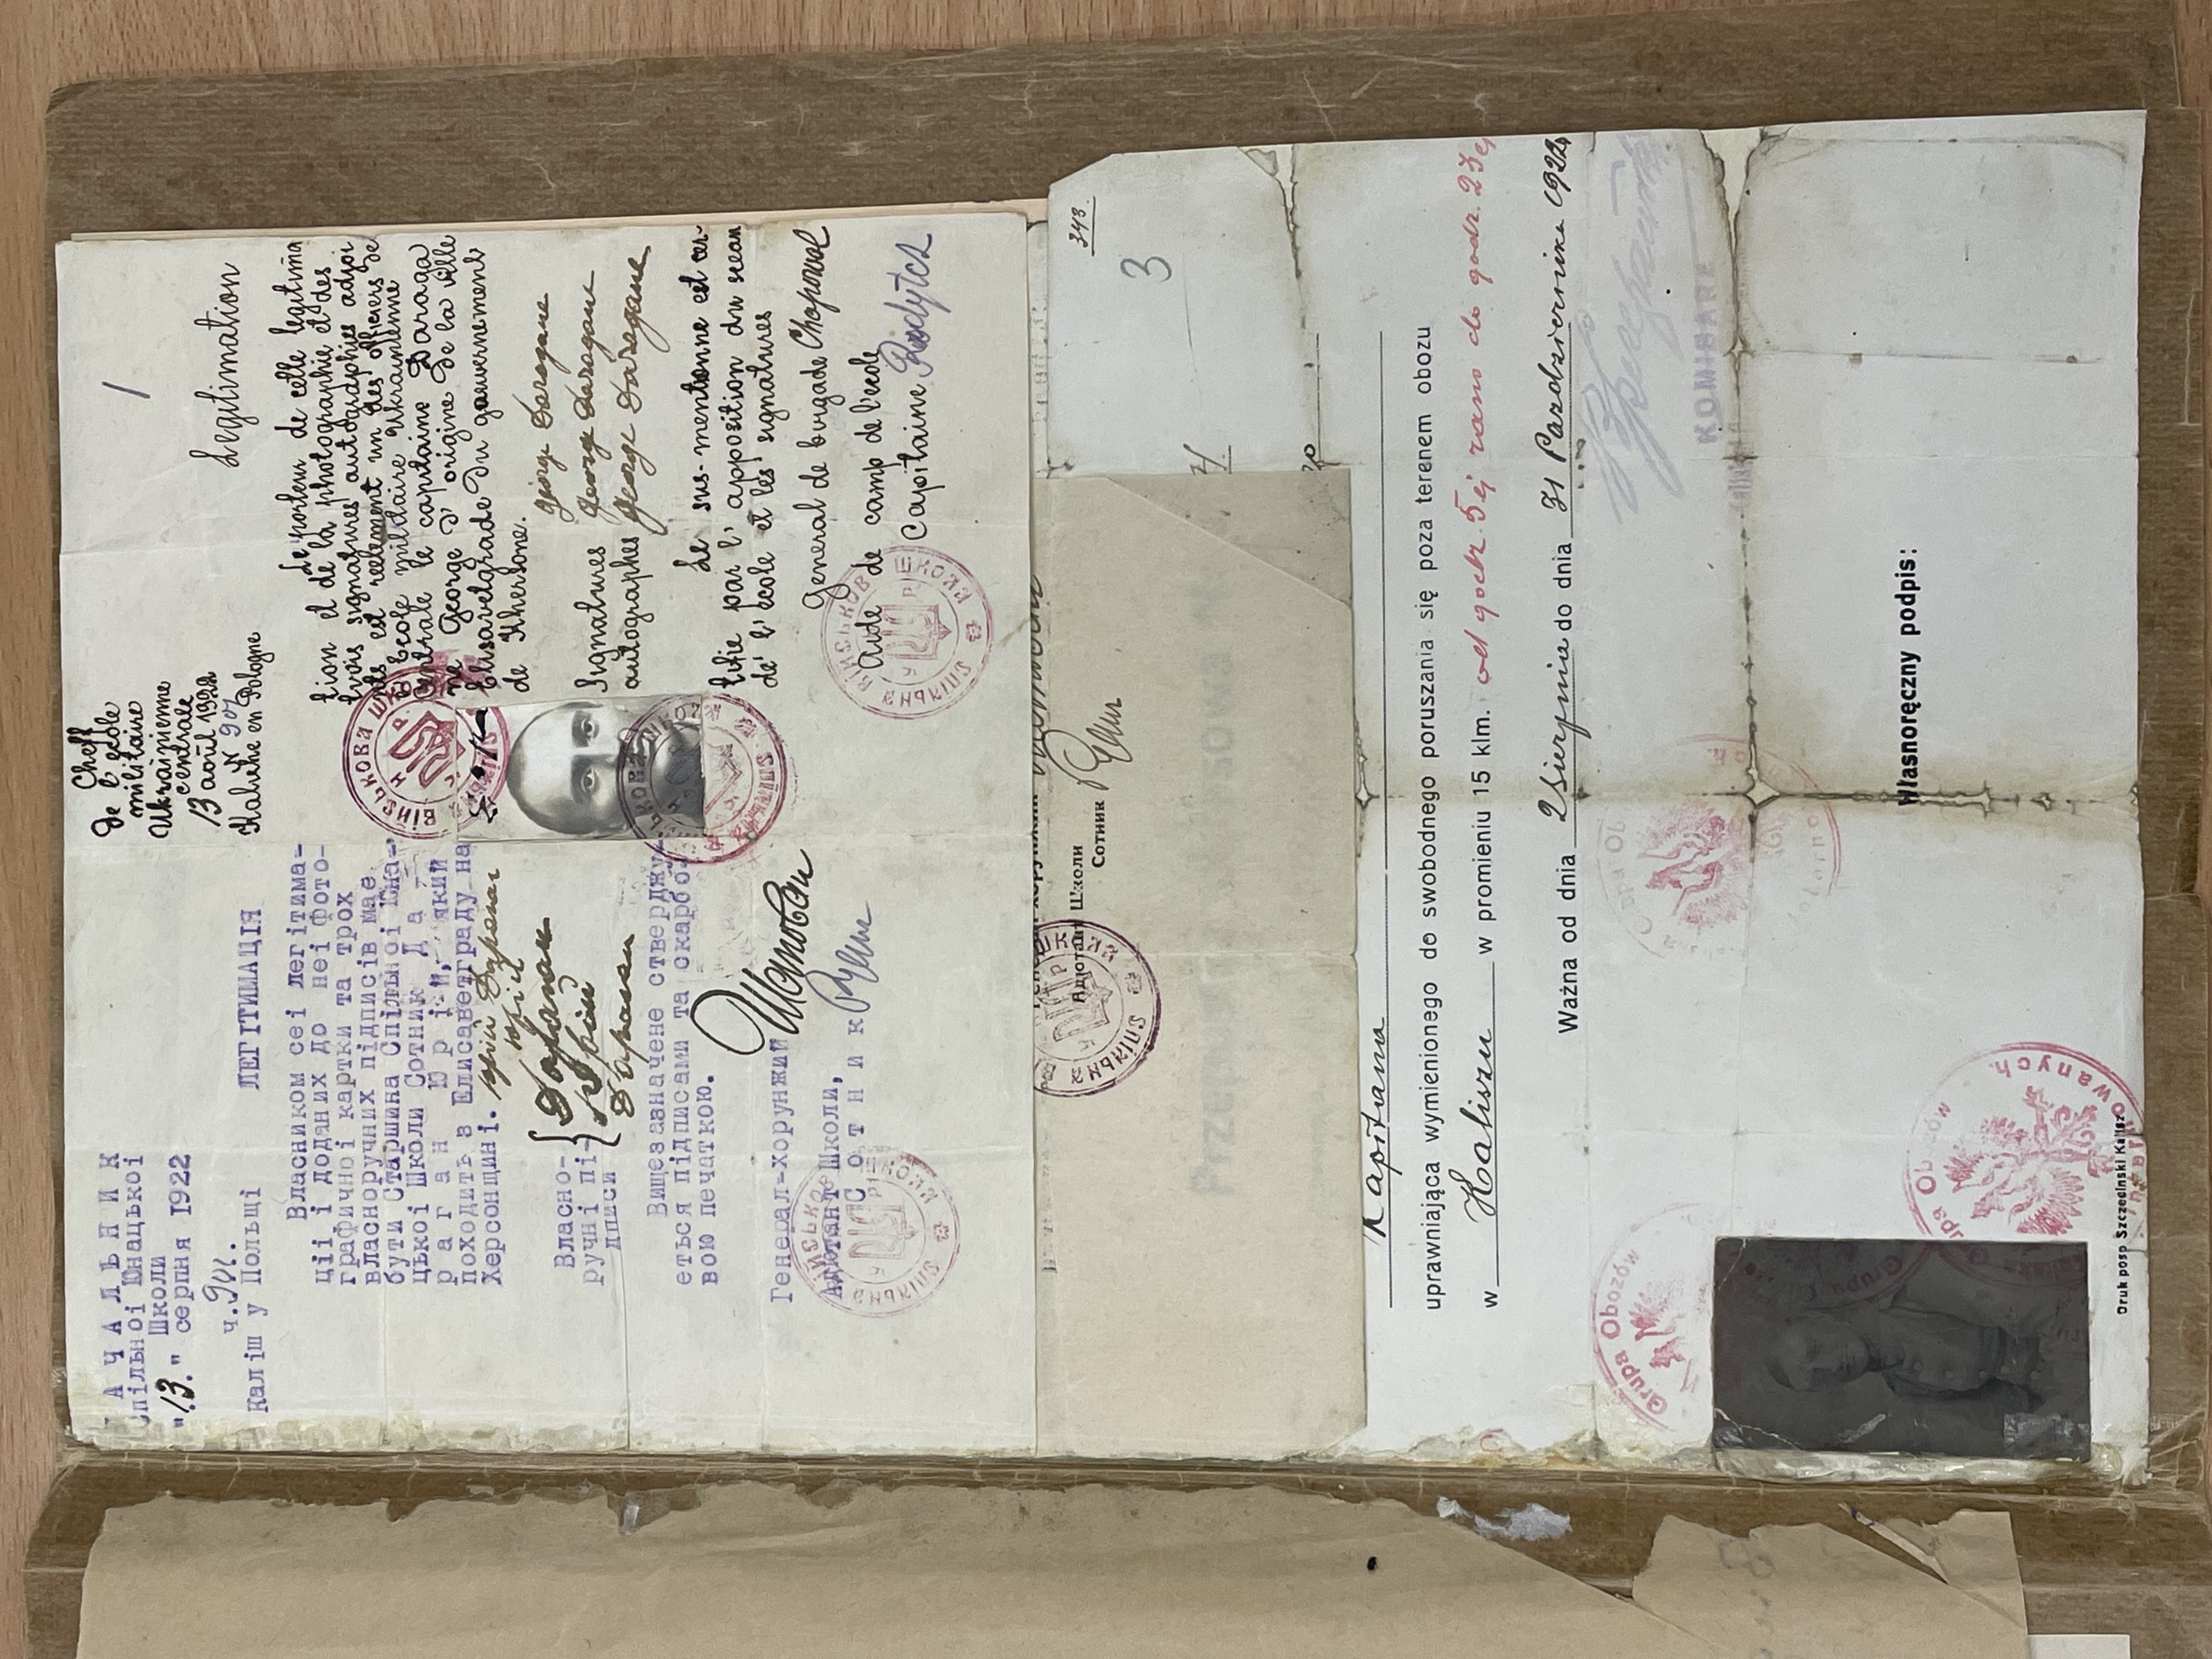 НАЧАЛЬНИК
Спільної Юнацької
Школи
"13." серпня 1922
ч. 901.
Каліш у Польщі
ЛЕГІТИМАЦІЯ
Власником сеі легітима-
ціі і доданих до неі фото-
графичноі картки та трох
власноручних підписів має
бути Старшина Спільноі Юна-
цькоі Школи Сотник Д а -
р а г а н Ю р і й, який
походить з Елисаветграду на
Херсонщині.
Власно-
ручні пі-
дписи
Юрій Дараган
Юрій
Дараган
Юрій
Дараган
Вищезазначене стверджу-
еться підписами та скарбо-
вою печаткою.
Генерал-хорунжий
Адютант Школи,
С о т н и к
1
Cheff
de l'ecole
militaire
Ukrainienne
centrale
13 aoùt 1922
N 901
Kalische en Pologne
Legitimation
Le porteur de celle legitima
tion et de la photographie et des
trois signatures autographies adjoi
ntes est reelement un des officiers de
l'Ecole militaire Ukrainienne
Centrale le capitaine Daraga
ne George d'origine de la ville
Elisavetgrade du gouvernement
de Khersone.
Signatures
autographes
George Daragane
George Daragane
George Daragane
Le sus-mentionne est cer-
tifie par l'apposition du scean
de l'ecole et les signatures
General de brigade Chapoval
Aide de camp de l'ecole
Capitaine Roudytch
СПІЛЬНА ВІЙСЬКОВА ШКОЛА
У Н Р
343.
3
Адютант Школи
Сотник
Kapitana
uprawniająca wymienionego do swobodnego poruszania się poza terenem obozu
w Kaliszu w promieniu 15 klm. od godz. 5ej rano do godz. 23ej
Ważna od dnia 2 Sierpnia do dnia 31 Pazdziernika 1922
KOMISARZ
Grupa Obozów
Własnoręczny podpis:
Druk posp Szczecinski Kalisz